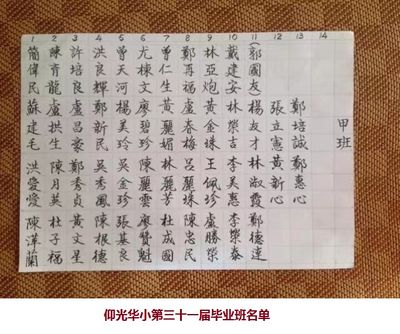 1 2 3 4 5 6 7 8 9 10 11 12 13 14
簡偉民 蘇建毛 洪愛愛 陳萍蘭
陳育龍 盧拱生 陳月英 杜子福
許培良 盧昌豪 鄭秀貞 黃文星
洪良輝 鄭新民 吳秀鳳 陳根德
曾天河 楊美玲 吳金珍 張基良
尤棟文 廖碧珍 陳麗雲 廖贊魁
曾仁生 黃麗媚 林麗芳 杜成國
鄭再福 盧春梅 呂麗珠 陳忠民
林亞炮 黃金珠 王佩珍 盧勝榮
戴建安 林榮吉 李美惠 李榮泰
(郭國友) 楊友才 林淑霞 鄭德達
張立憲 黃新心
鄭培誠 鄭惠心
甲班
仰光华小第三十一届毕业班名单